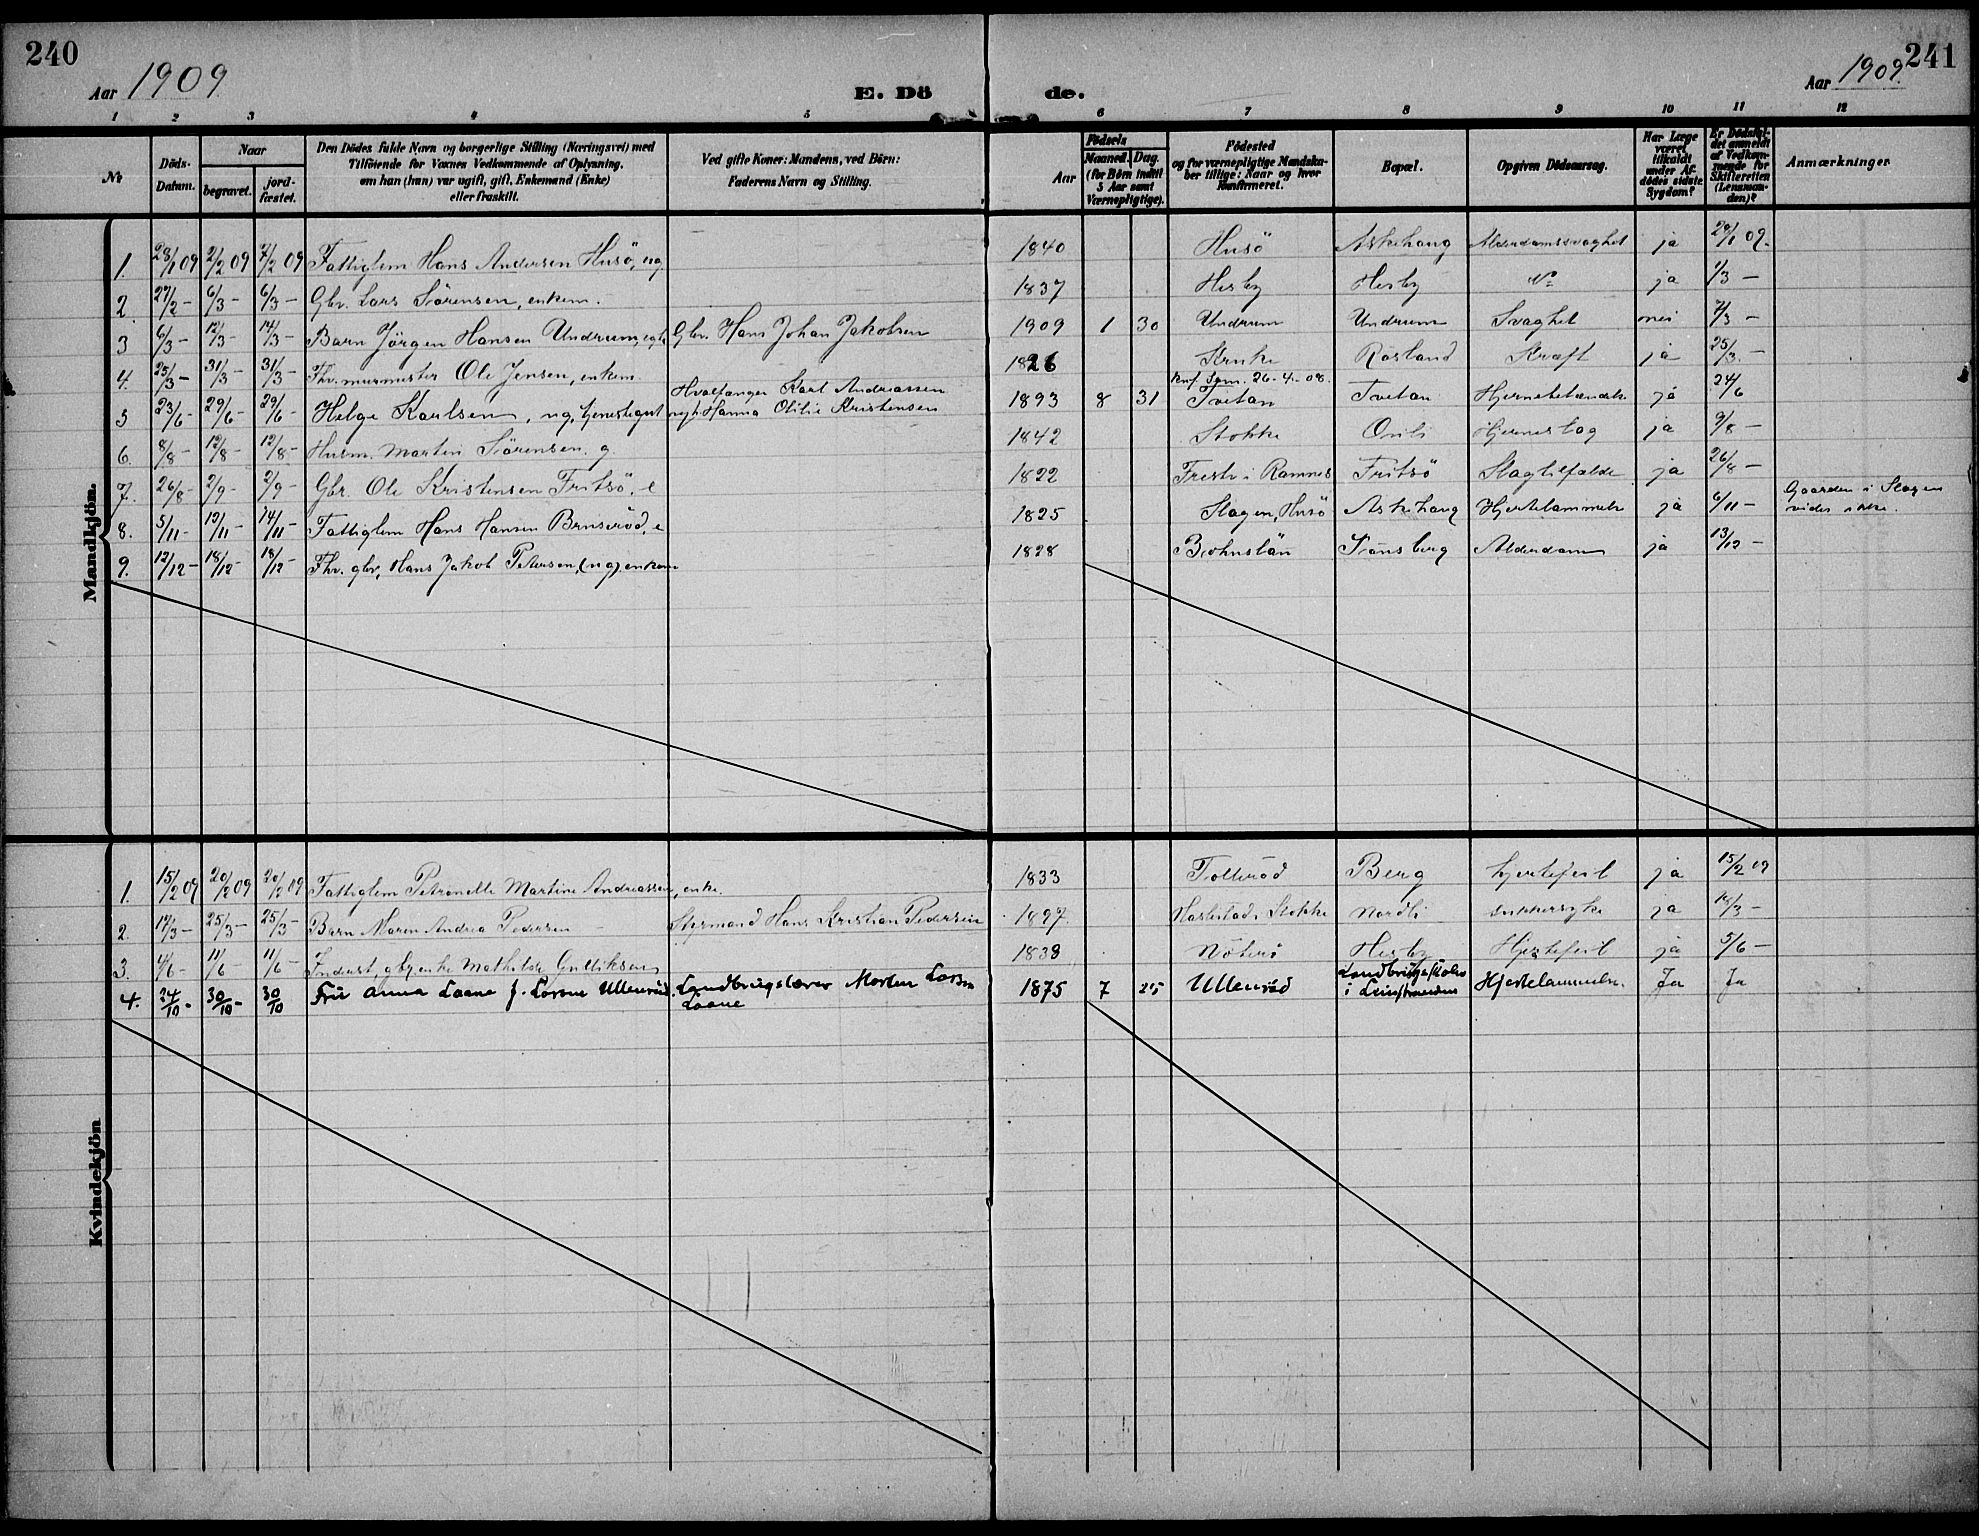 240
Aar 1909
E. Dö
de.
Aar 1909.
241
1 2 3 4 5 6 7 8 9 10 11 12
№
Döds-
Datum.
Naar
begravet.
jord-
fæstet.
Den Dödes fulde Navn og borgerlige Stilling (Næringsvei) med
Tilföiende for Voxnes Vedkommende af Oplysning,
om han (hun) var ugift, gift, Enkemand (Enke)
eller fraskilt.
Ved gifte Koner: Mandens, ved Börn:
Faderens Navn og Stilling.
Födsels
Aar
Maaned. Dag.
(for Börn indtil
5 Aar samt
Værnepligtige).
Födested
og for værnepligtige Mandska-
ber tillige: Naar og hvor
konfirmeret.
Bopæl.
Opgiven Dödsaarsag.
Har Læge
været
tilkaldt
under Af-
dödes sidste
Sygdom?
Er Dödsfal-
det anmeldt
af Vedkom-
mende for
Skifteretten
(Lensman-
den)?
Anmærkninger
Mandkjön.
1. 28/1 09 2/2 09 7/2 09 Fattiglem Hans Andersen Husö, ug. 1840 Husö Askehaug Alderdomssvaghet ja 29/1 09.
2. 27/2 - 6/3 - 6/3 - Gbr. Lars Sörensen, enkem. 1837 Hesby Hesby ja 1/3 -
3 6/3 - 12/3 - 14/3 - Barn Jörgen Hansen Undrum, egte Gbr. Hans Johan Jakobsen 1909 1 30 Undrum Undrum Svaghet nei 7/3 -
4. 25/3 - 31/3 - 31/3 - Fhv. murmester Ole Jensen, enkem. 1826 Kruke Rosland Kræft ja 25/3 -
Hvalfanger Karl Andreassen
Knf. Sem. 26-4-08.
5 23/6 29/6 - 29/6 - Helge Karlsen, ug, tjenestegut og h. Hanna Otilie Kristensen 1893 8 31 Tvetan Tvetan Hjernebetændelse ja 24/6
6. 8/8 - 12/8 - 12/8 - Husm. Martin Sörensen. g 1842 Stokke Orili Hjerneslag ja 9/8 -
7. 26/8 - 2/9 - 2/9 - Gbr. Ole Kristensen Fritsö, e 1822 i Ramnes Fritsö Slagtilfælde ja 26/8 -
Gaarden i Slagen
vides ikke.
8. 5/11 - 12/11 - 14/11 - Fattiglem Hans Hansen Brunseröd, e 1825 Slagen, Husö Askehaug Hjertelammelse ja 6/11 -
9. 12/12 - 18/12 - 18/12 - Fhv. gbr. Hans Jakob Petersen, (ug) enkem 1828 Bohuslän Tönsberg Alderdom ja 13/12 -
Kvindekjön
1. 15/2 09 20/2 09 20/2 09 Fattiglem Petronelle Martine Andreassen, enke. 1833 Tolleröd Berg hjertefeil ja 15/2 09
2. 17/3 - 25/3 - 25/3 - Barn Maren Andrea Pedersen Styrmand Hans Kristian Pedersen 1897. Haslestad i Stokke Nordli sukkersyke ja 18/3 -
3. 4/6 - 11/6 11/6 - Inderst, gbrenke Mathilde Gulliksen 1838 Nöterö Hesby Hjertefeil ja 5/6 -
4. 24/10 - 30/10 - 30/10 Fru Anna Laane f. Lorene Ulleröd. Landbrugslærer Morten Larsen
Laane
1875 7 25 Ulleröd Landbrugsskolen
i Leinstranden Hjertelammelse. Ja Ja